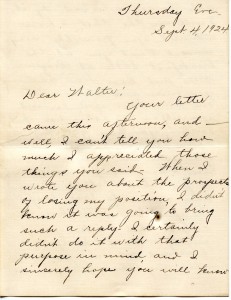 Thursday Eve.
Sept 4 1924
Dear Walter:
Your letter
came this afternoon, and —
well, I can't tell you how
much I appreciated those
things you said. When I
wrote you about the prospects
of losing my position, I didn't
know it was going to bring
such a reply. I certainly
didn't do it with that
purpose in mind, and I
sincerely hope you will know